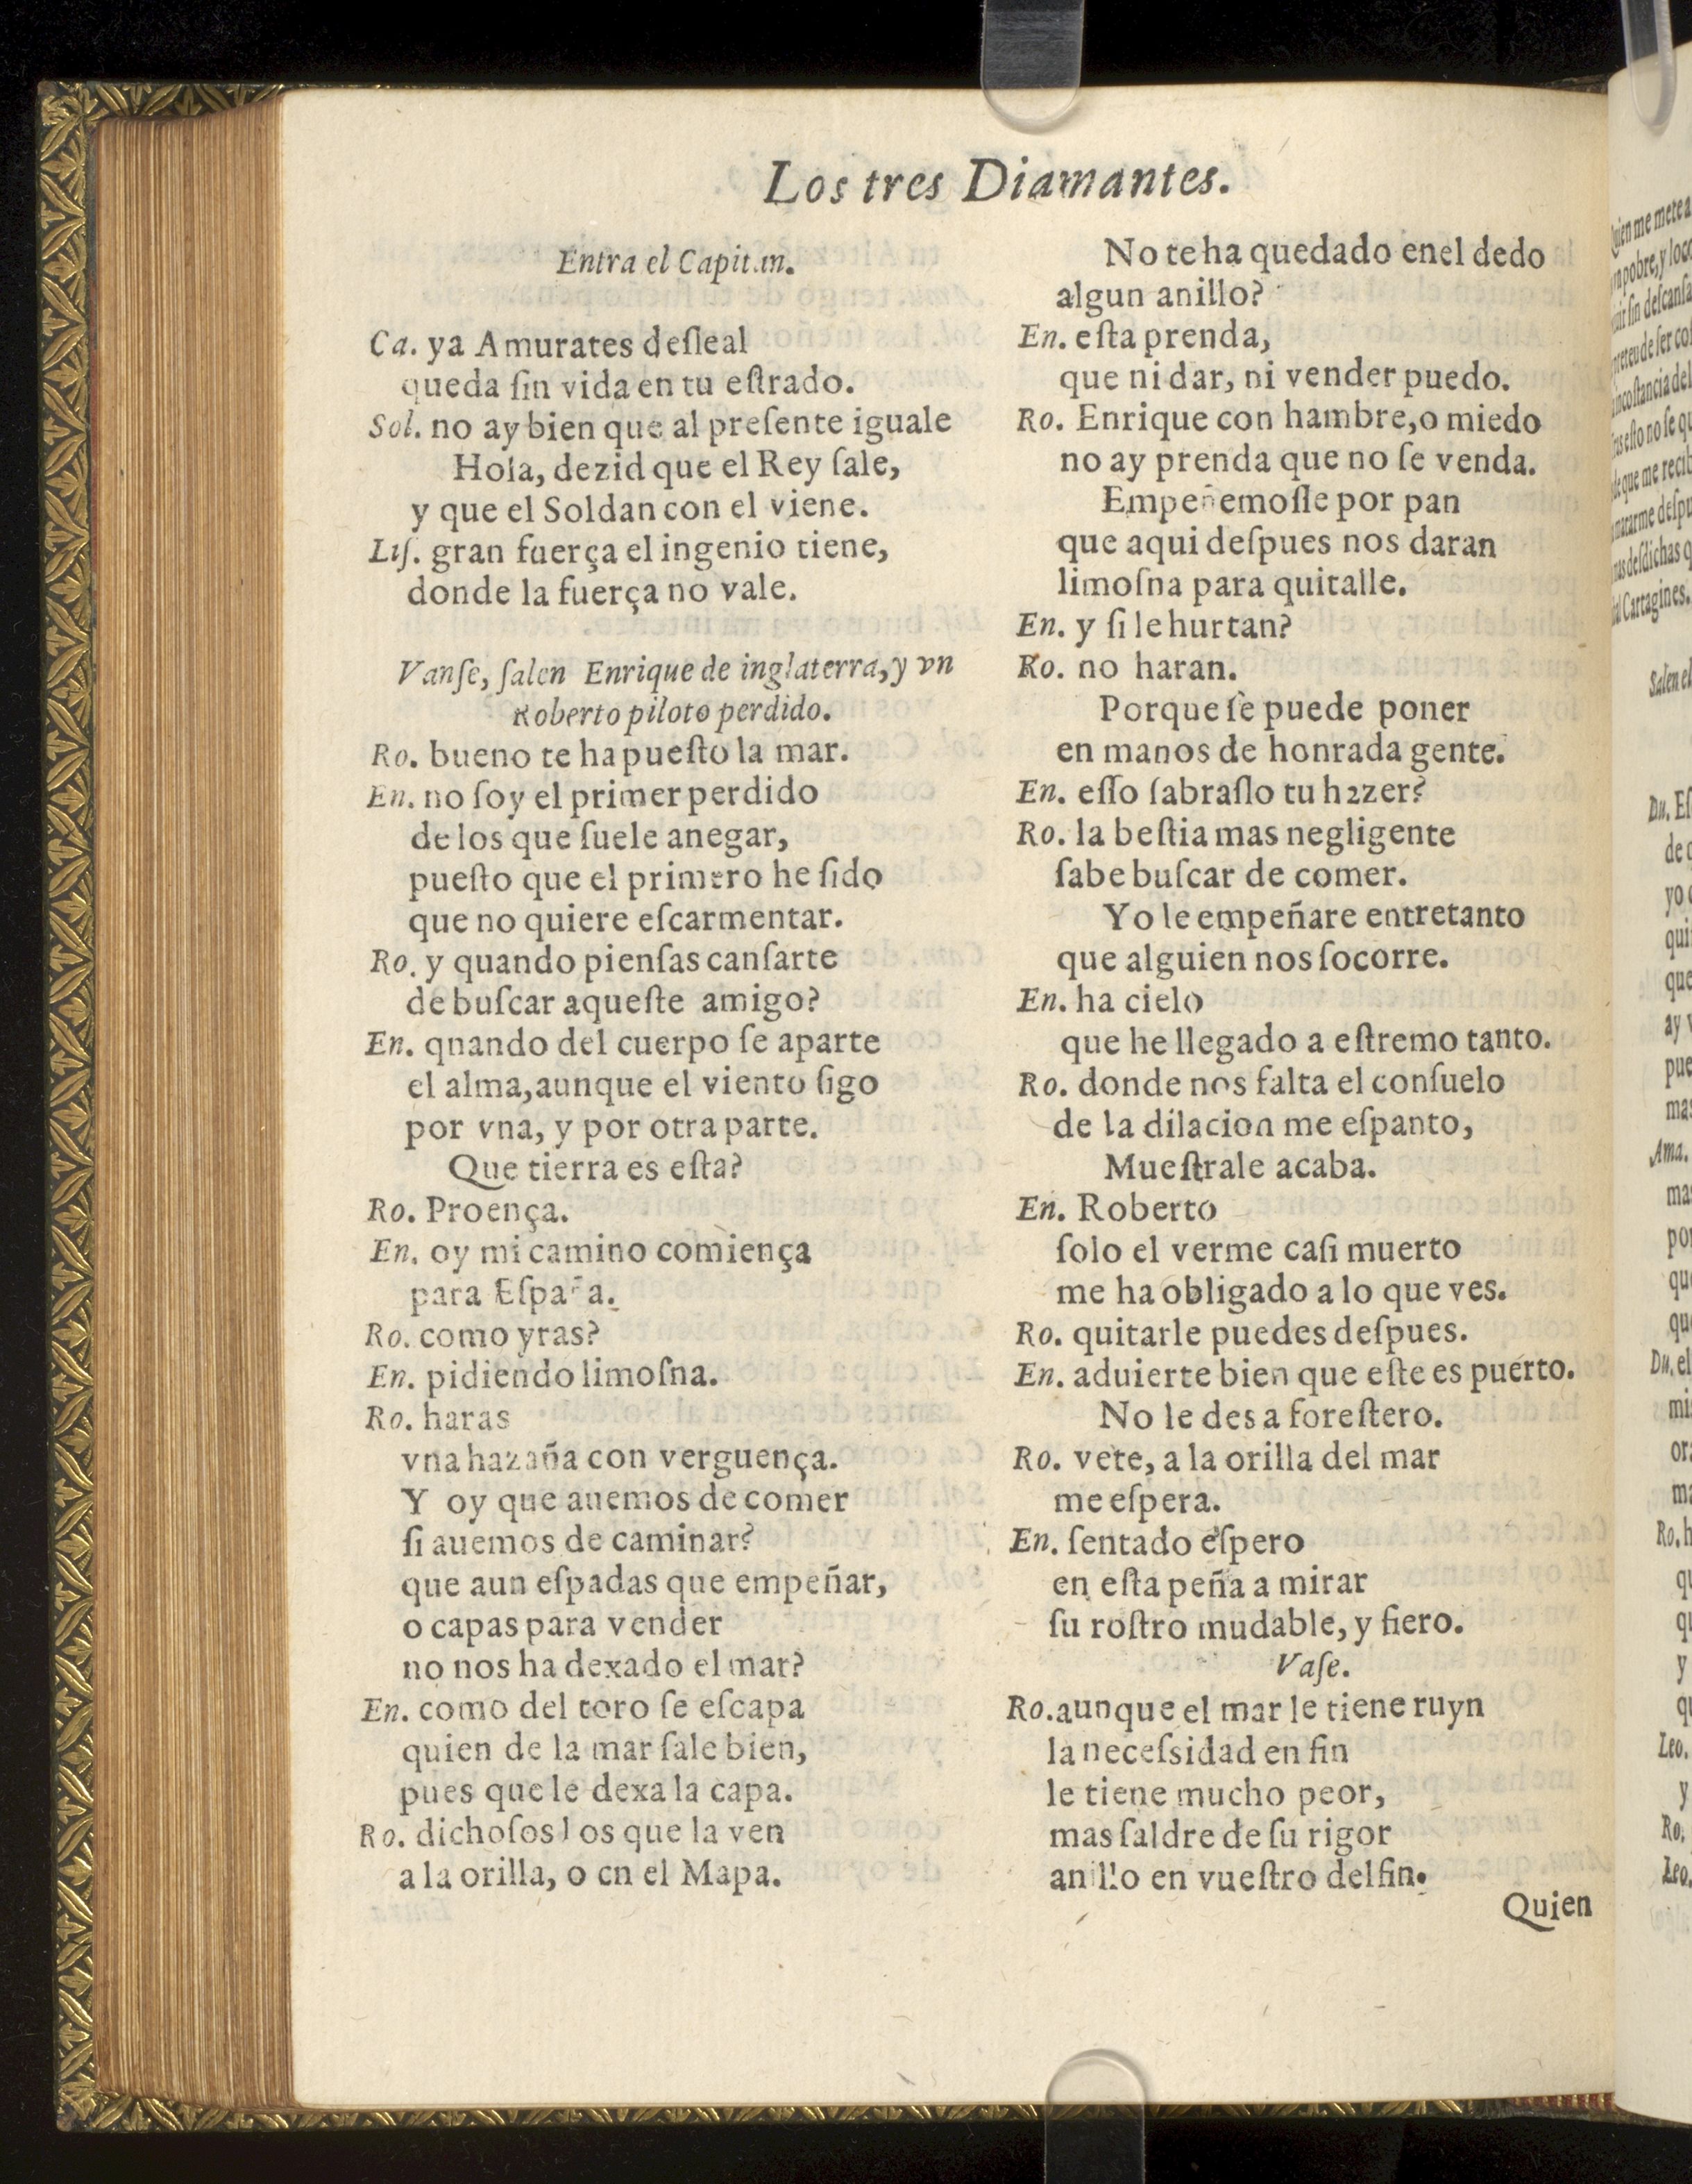 Los tres Diamantes.
Entra el Capitan.
Ca. ya Amurates desleal
queda ſin vida en tu eſtrado.
Sol. no ay bien que al preſente iguale
Hola, dezid que el Rey ſale,
y que el Soldan con el viene.
Liſ. gran fuerça el ingenio tiene,
donde la fuerça no vale.
Vanſe, ſalen Enrique de inglaterra, y vn
Roberto piloto perdido.
Ro. bueno te ha pueſto la mar.
En. no ſoy el primer perdido
de los que ſuele anegar,
pueſto que el primero he ſido
que no quiere eſcarmentar.
Ro. y quando pienſas canſarte
de buſcar aqueſte amigo?
En. qnando del cuerpo ſe aparte
el alma, aunque el viento ſigo
por vna, y por otra parte.
Que tierra es eſta?
Ro. Proença.
En. oy mi camino comiença
para Eſpaña.
Ro. como yras?
En. pidiendo limoſna.
Ro. haras
vna hazaña con verguença.
Y oy que auemos de comer
ſi auemos de caminar?
que aun eſpadas que empeñar,
o capas para vender
no nos ha dexado el mar?
En. como del toro ſe eſcapa
quien de la mar ſale bien,
pues que le dexa la capa.
Ro. dichoſos los que la ven
a la orilla, o en el Mapa.
No te ha quedado en el dedo
algun anillo?
En. eſta prenda,
que ni dar, ni vender puedo.
Ro. Enrique con hambre, o miedo
no ay prenda que no ſe venda.
Empeñemoſle por pan
que aqui deſpues nos daran
limoſna para quitalle.
En. y ſi le hurtan?
Ro. no haran.
Porque ſe puede poner
en manos de honrada gente.
En. eſſo ſabraſlo tu hazer?
Ro. la beſtia mas negligente
ſabe buſcar de comer.
Yo le empeñare entretanto
que alguien nos ſocorre.
En. ha cielo
que he llegado a eſtremo tanto.
Ro. donde nos falta el conſuelo
de la dilacion me eſpanto,
Mueſtrale acaba.
En. Roberto
ſolo el verme caſi muerto
me ha obligado a lo que ves.
Ro. quitarle puedes deſpues.
En. aduierte bien que eſte es puerto.
No le des a foreſtero.
Ro. vete, a la orilla del mar
me eſpera.
En. ſentado eſpero
en eſta peña a mirar
ſu roſtro mudable, y fiero.
Vaſe.
Ro. aunque el mar le tiene ruyn
la neceſsidad en fin
le tiene mucho peor,
mas ſaldre de ſu rigor
anillo en vueſtro delfin.
Quien